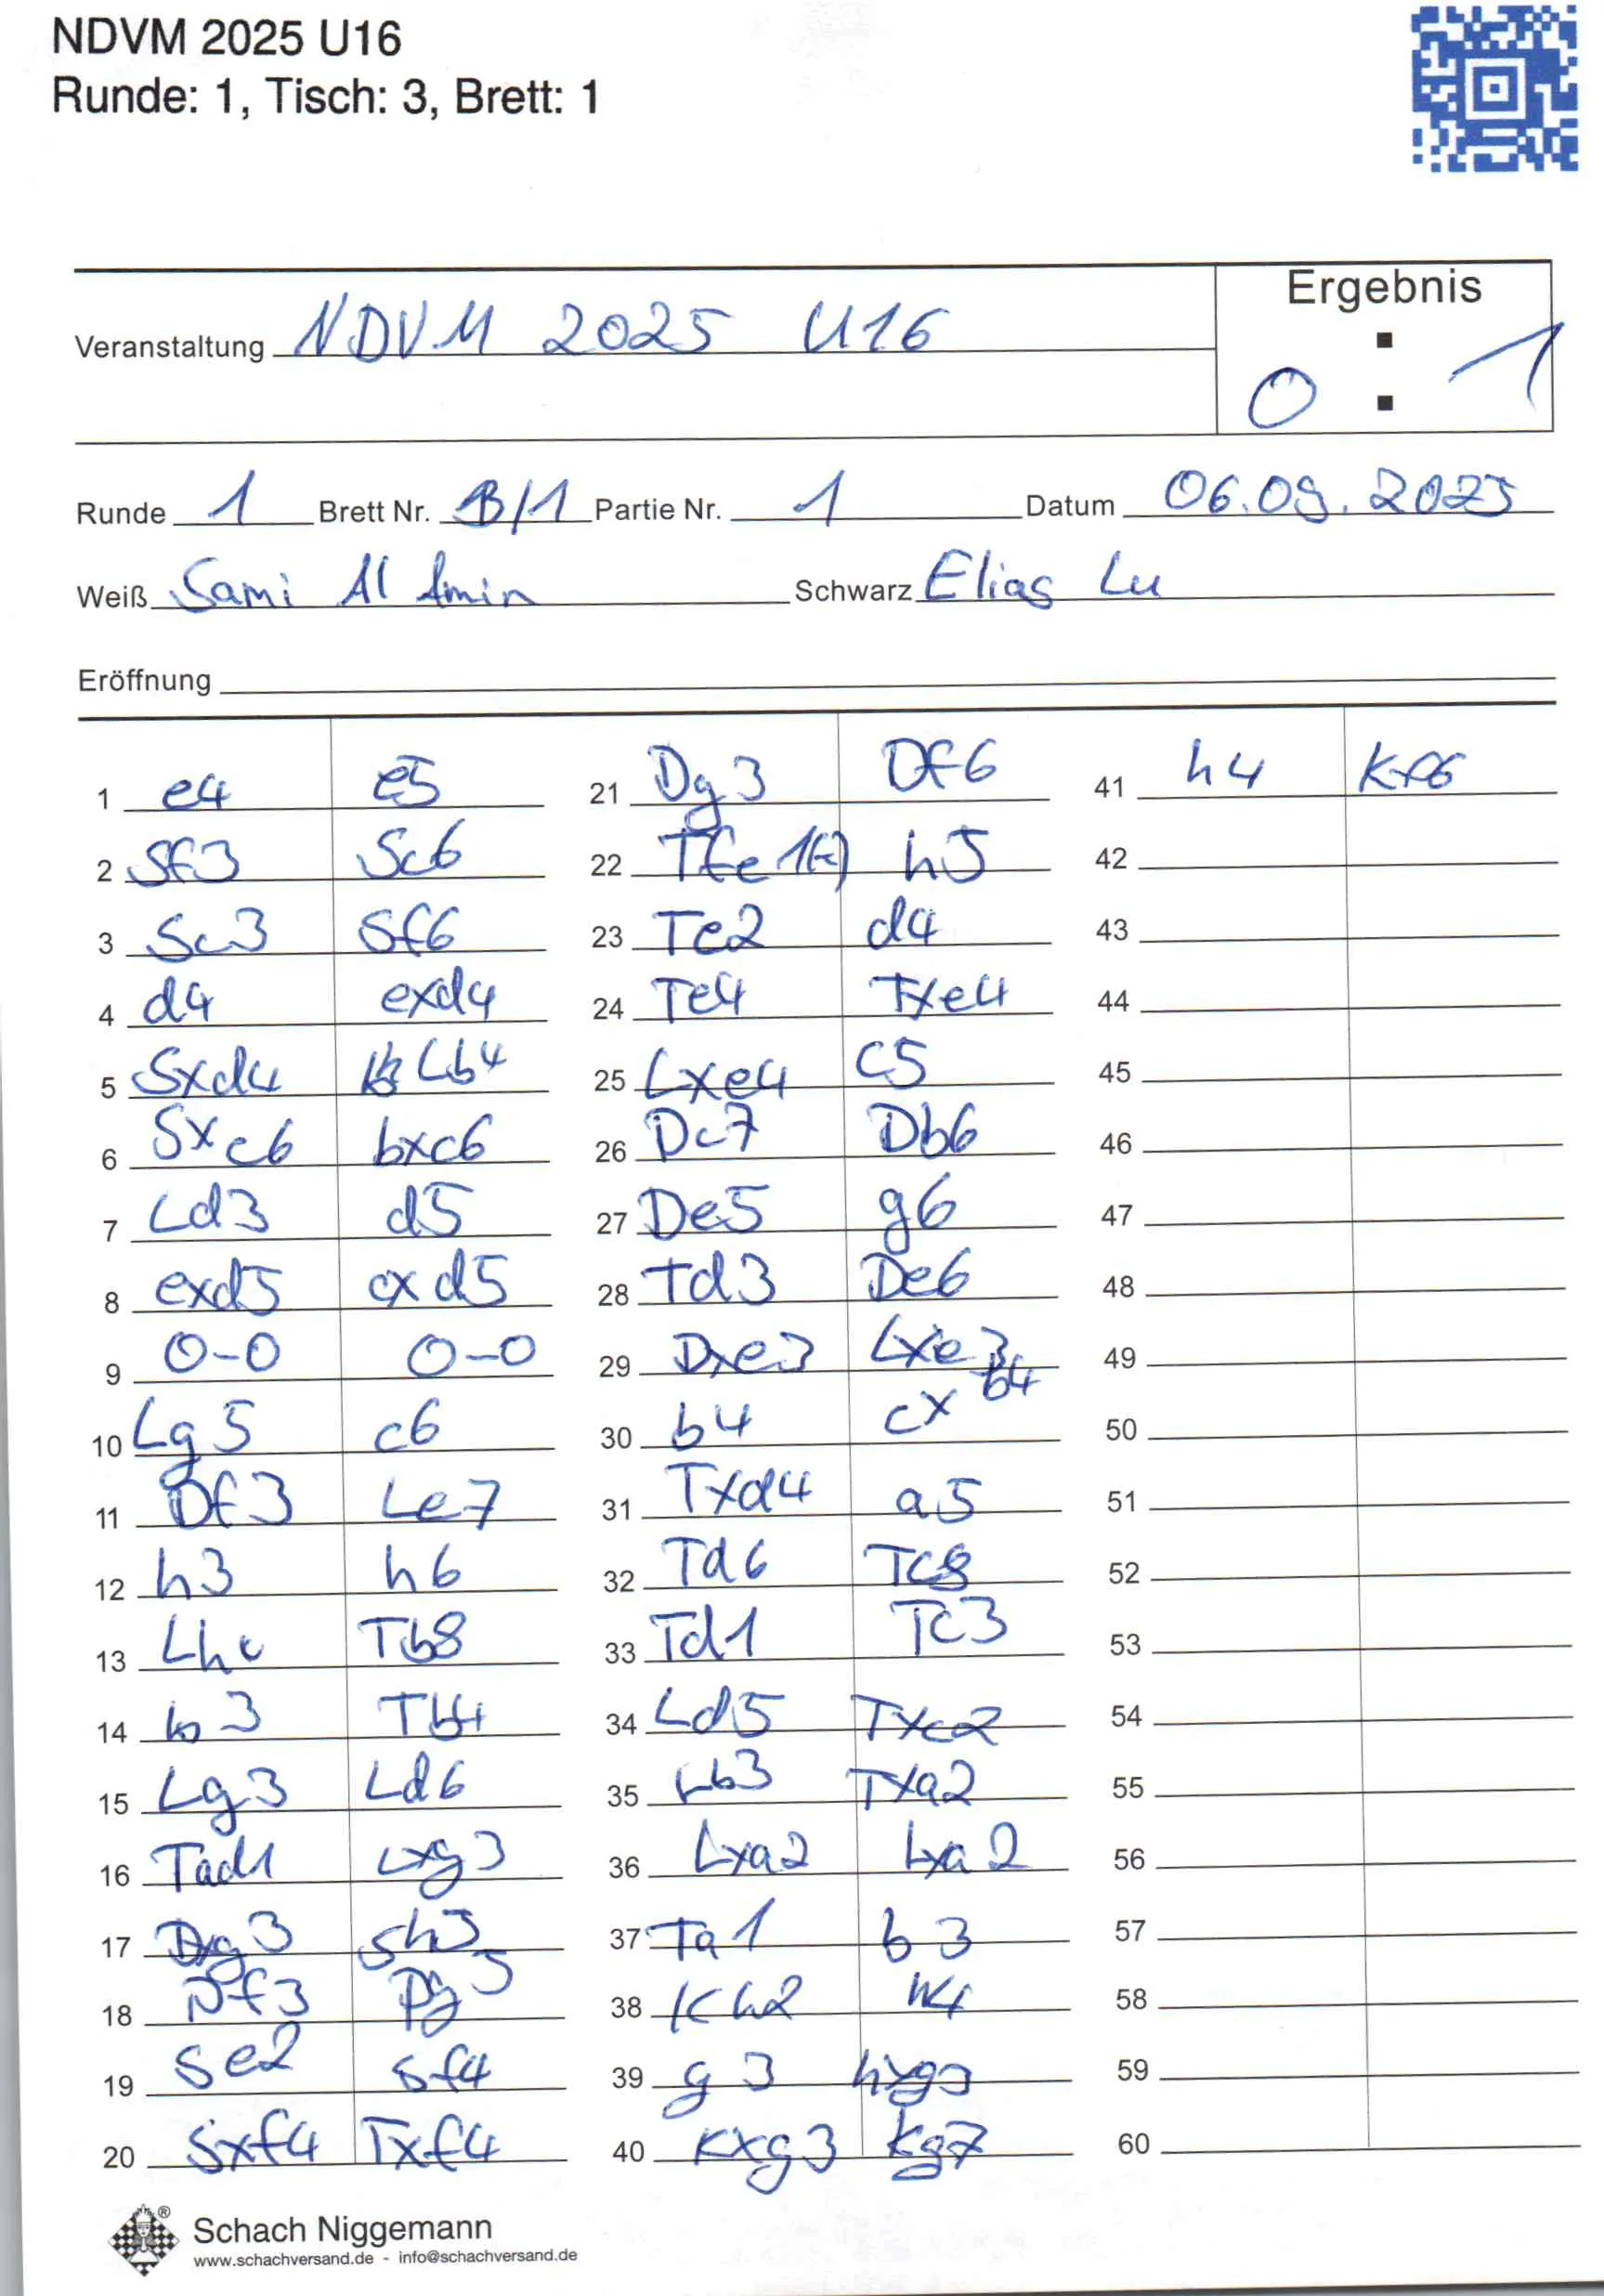 NDVM 2025 U16
Runde: 1, Tisch: 3, Brett: 1
Ergebnis
Veranstaltung NDVM 2025 U16
0 : 1
Runde 1 Brett Nr. B/1 Partie Nr. 1 Datum 06.09.2025
Weiß Sami Al Amin Schwarz Elias Lu
Eröffnung
1 e4 e5
2 Sf3 Sc6
3 Sc3 Sf6
4 d4 exd4
5 Sxd4 Lb4
6 Sxc6 bxc6
7 Ld3 d5
8 exd5 cxd5
9 0-0 0-0
10 Lg5 c6
11 Df3 Le7
12 h3 h6
13 Tb8
14 b3 Tb4
15 Lg3 Ld6
16 Tad1 Lxg3
17 Dxg3 Sh5
18 Df3 Dg5
19 Se2 Sf4
20 Sxf4 Txf4
21 Dg3 Df6
22 Tfe1(=) h5
23 Te2 d4
24 Te4 Txe4
25 Lxe4 c5
26 Dc7 Db6
27 De5 g6
28 Td3 De6
29 Dxe3 Lxe3
30 b4 cxb4
31 Txd4 a5
32 Td6 Tc8
33 Td1 Tc3
34 Ld5 Txc2
35 Lb3 Txa2
36 Lxa2 Lxa2
37 Ta1 b3
38 Kh2 h4
39 g3 hxg3
40 Kxg3 Kg7
41 h4 Kf6
42
43
44
45
46
47
48
49
50
51
52
53
54
55
56
57
58
59
60
Schach Niggemann
www.schachversand.de - info@schachversand.de